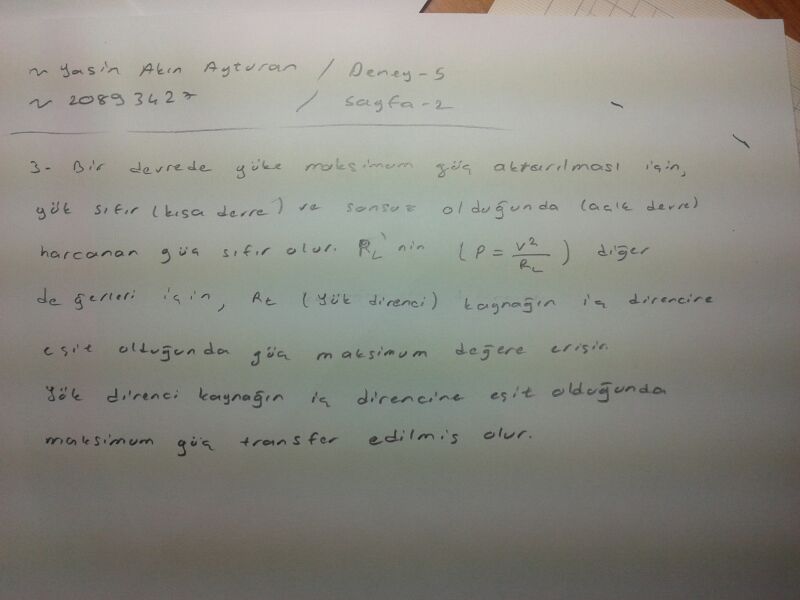 ~ Yasin Akın Ayturan / Deney-5
~ 20893427 / Sayfa-2
3- Bir devrede yüke maksimum güç aktarılması için,
yük sıfır (kısa devre) ve sonsuz olduğunda (açık devre)
harcanan güç sıfır olur. RL'nin (P = V²/RL) diğer
değerleri için, RL (Yük direnci) kaynağın iç direncine
eşit olduğunda güç maksimum değere erişir.
Yük direnci kaynağın iç direncine eşit olduğunda
maksimum güç transfer edilmiş olur.